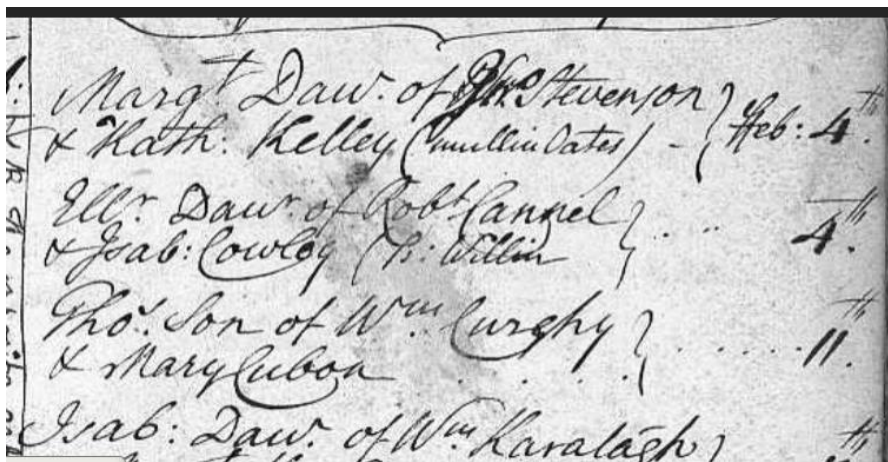 Marg.t Daw.r of Jno. Stevenson
& Kath: Kelley (mullin Oates) - } Feb: 4th.
Ell.r Daw.r of Rob.t Cannel
& Isab: Cowley (B: Willin } .... 4th.
Tho.s Son of W.m Curghy
& Mary Cubon .... } ...... 11th.
Isab: Daw.r of W.m Karalagh } th